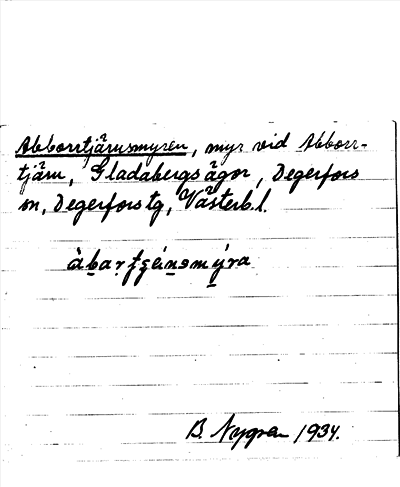 Abborrtjärnsmyren, myr vid Abborr-
tjärn, Gladabergs ägor, Degerfors
sn, Degerfors tg, Västerb. l.
B. Nygren 1934.